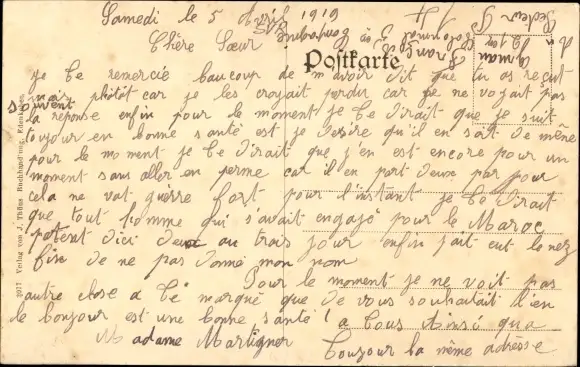 Samedi le 5 Avril 1919
Chère Sœur
Postkarte
je te remercie beaucoup de m'avoir dit que tu as reçut
mas photot car je les croyait perdu car je ne voyait pas
souvent
la reponse enfin pour le moment je te dirait que je suit
toujour en bonne santé est je desire qu'il en soit de même
pour le moment je te dirait que j'en est encore pour un
moment sans aller en perme car il en part deux par jour
cela ne vat guèrre fort pour l'instant je te dirait
que tout homme qui s'avait engagé pour le Maroc
partent d'ici deux au trois jour enfin jait eut le nez
fin de ne pas donné mon nom
Pour le moment je ne voit pas
autre close a te marqué que de vous souhaitait bien
le bonjour est une bonne santé a tous Ainsi que
Madame Martigner
toujour la même adresse
3977 Verlag von J. Thöns Buchhandlung, Edenkoben